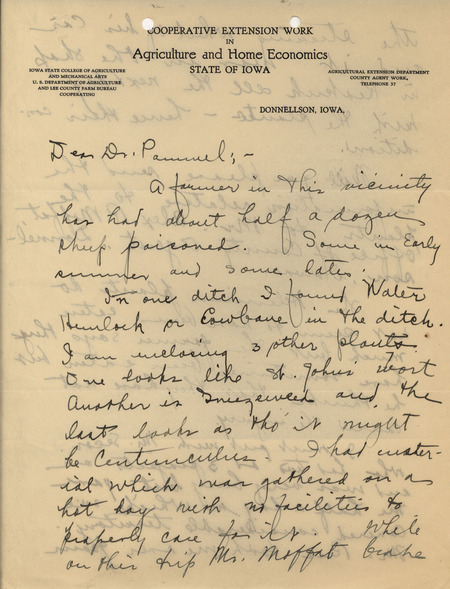 COOPERATIVE EXTENSION WORK
IN
Agriculture and Home Economics
STATE OF IOWA
IOWA STATE COLLEGE OF AGRICULTURE
AND MECHANICAL ARTS
U. S. DEPARTMENT OF AGRICULTURE
AND LEE COUNTY FARM BUREAU
COOPERATING
AGRICULTURAL EXTENSION DEPARTMENT
COUNTY AGENT WORK,
TELEPHONE 37
DONNELLSON, IOWA,
Dear Dr. Pammel;-
A farmer in this vicinity
has had about half a dozen
sheep poisoned. Some in Early
summer and some later.
In one ditch I found Water
Hemlock or Cowbane in the ditch.
I am inclosing 3 other plants.
One looks like St. Johns' wort
Another is Sneezeweed and the
last looks as tho' it might
be Centunculus. I had mater-
ial which was gathered on a
hot day with no facilities to
properly care for it. While
on this trip Mr. Moffat broke